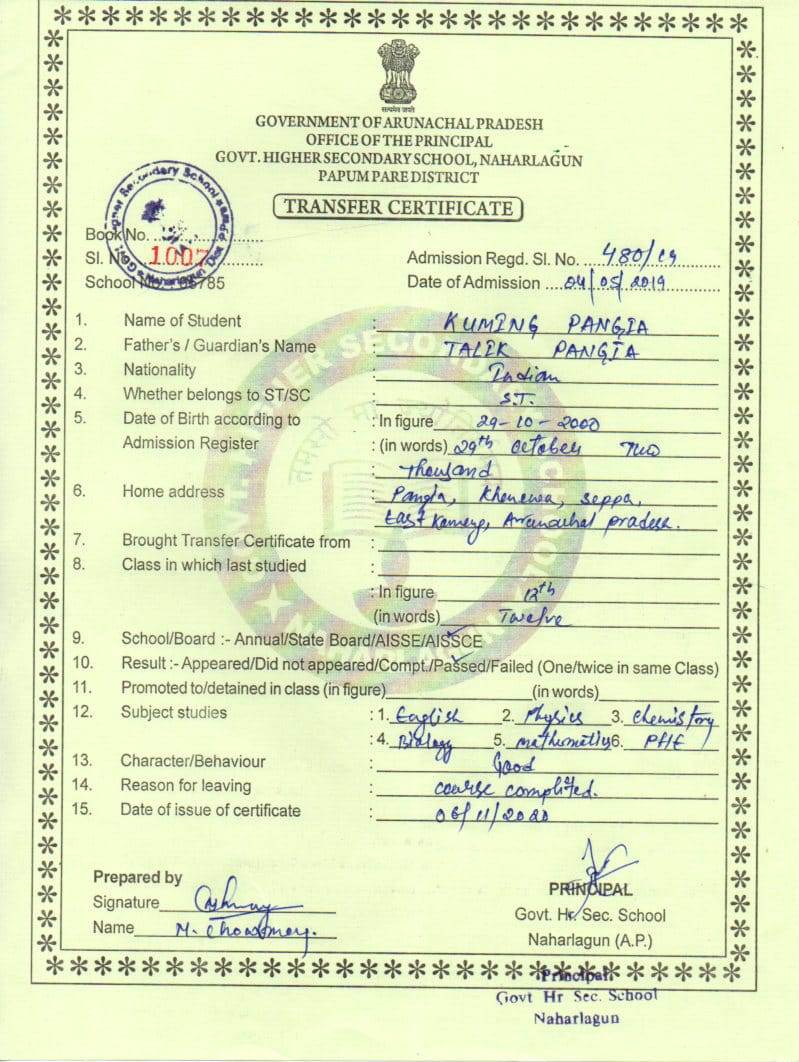 सत्यमेव जयते
GOVERNMENT OF ARUNACHAL PRADESH
OFFICE OF THE PRINCIPAL
GOVT. HIGHER SECONDARY SCHOOL, NAHARLAGUN
PAPUM PARE DISTRICT
TRANSFER CERTIFICATE
Book No.
Sl. No. 1007
Admission Regd. Sl. No. 480/19
School
Date of Admission 04/05/2019
1. Name of Student : KUMING PANGIA
2. Father's / Guardian's Name : TALIK PANGIA
3. Nationality : Indian
4. Whether belongs to ST/SC : S.T.
5. Date of Birth according to : In figure 29-10-2000
Admission Register : (in words) 29th October Two
: Thousand
6. Home address : Pangia, Khenewa, seppa,
East Kameng, Arunachal pradesh.
7. Brought Transfer Certificate from :
8. Class in which last studied :
: In figure 12th
(in words) Twelve
9. School/Board :- Annual/State Board/AISSE/AISSCE
10. Result :- Appeared/Did not appeared/Compt./Passed/Failed (One/twice in same Class)
11. Promoted to/detained in class (in figure) (in words)
12. Subject studies : 1. English 2. Physics 3. chemistory
: 4. Biology 5. mathematics 6. PHE
13. Character/Behaviour : Good
14. Reason for leaving : course complited.
15. Date of issue of certificate : 06/11/2020
Prepared by
Signature
Name M. Chowdhury.
PRINCIPAL
Govt. Hr. Sec. School
Naharlagun (A.P.)
Principal
Govt Hr Sec. School
Naharlagun